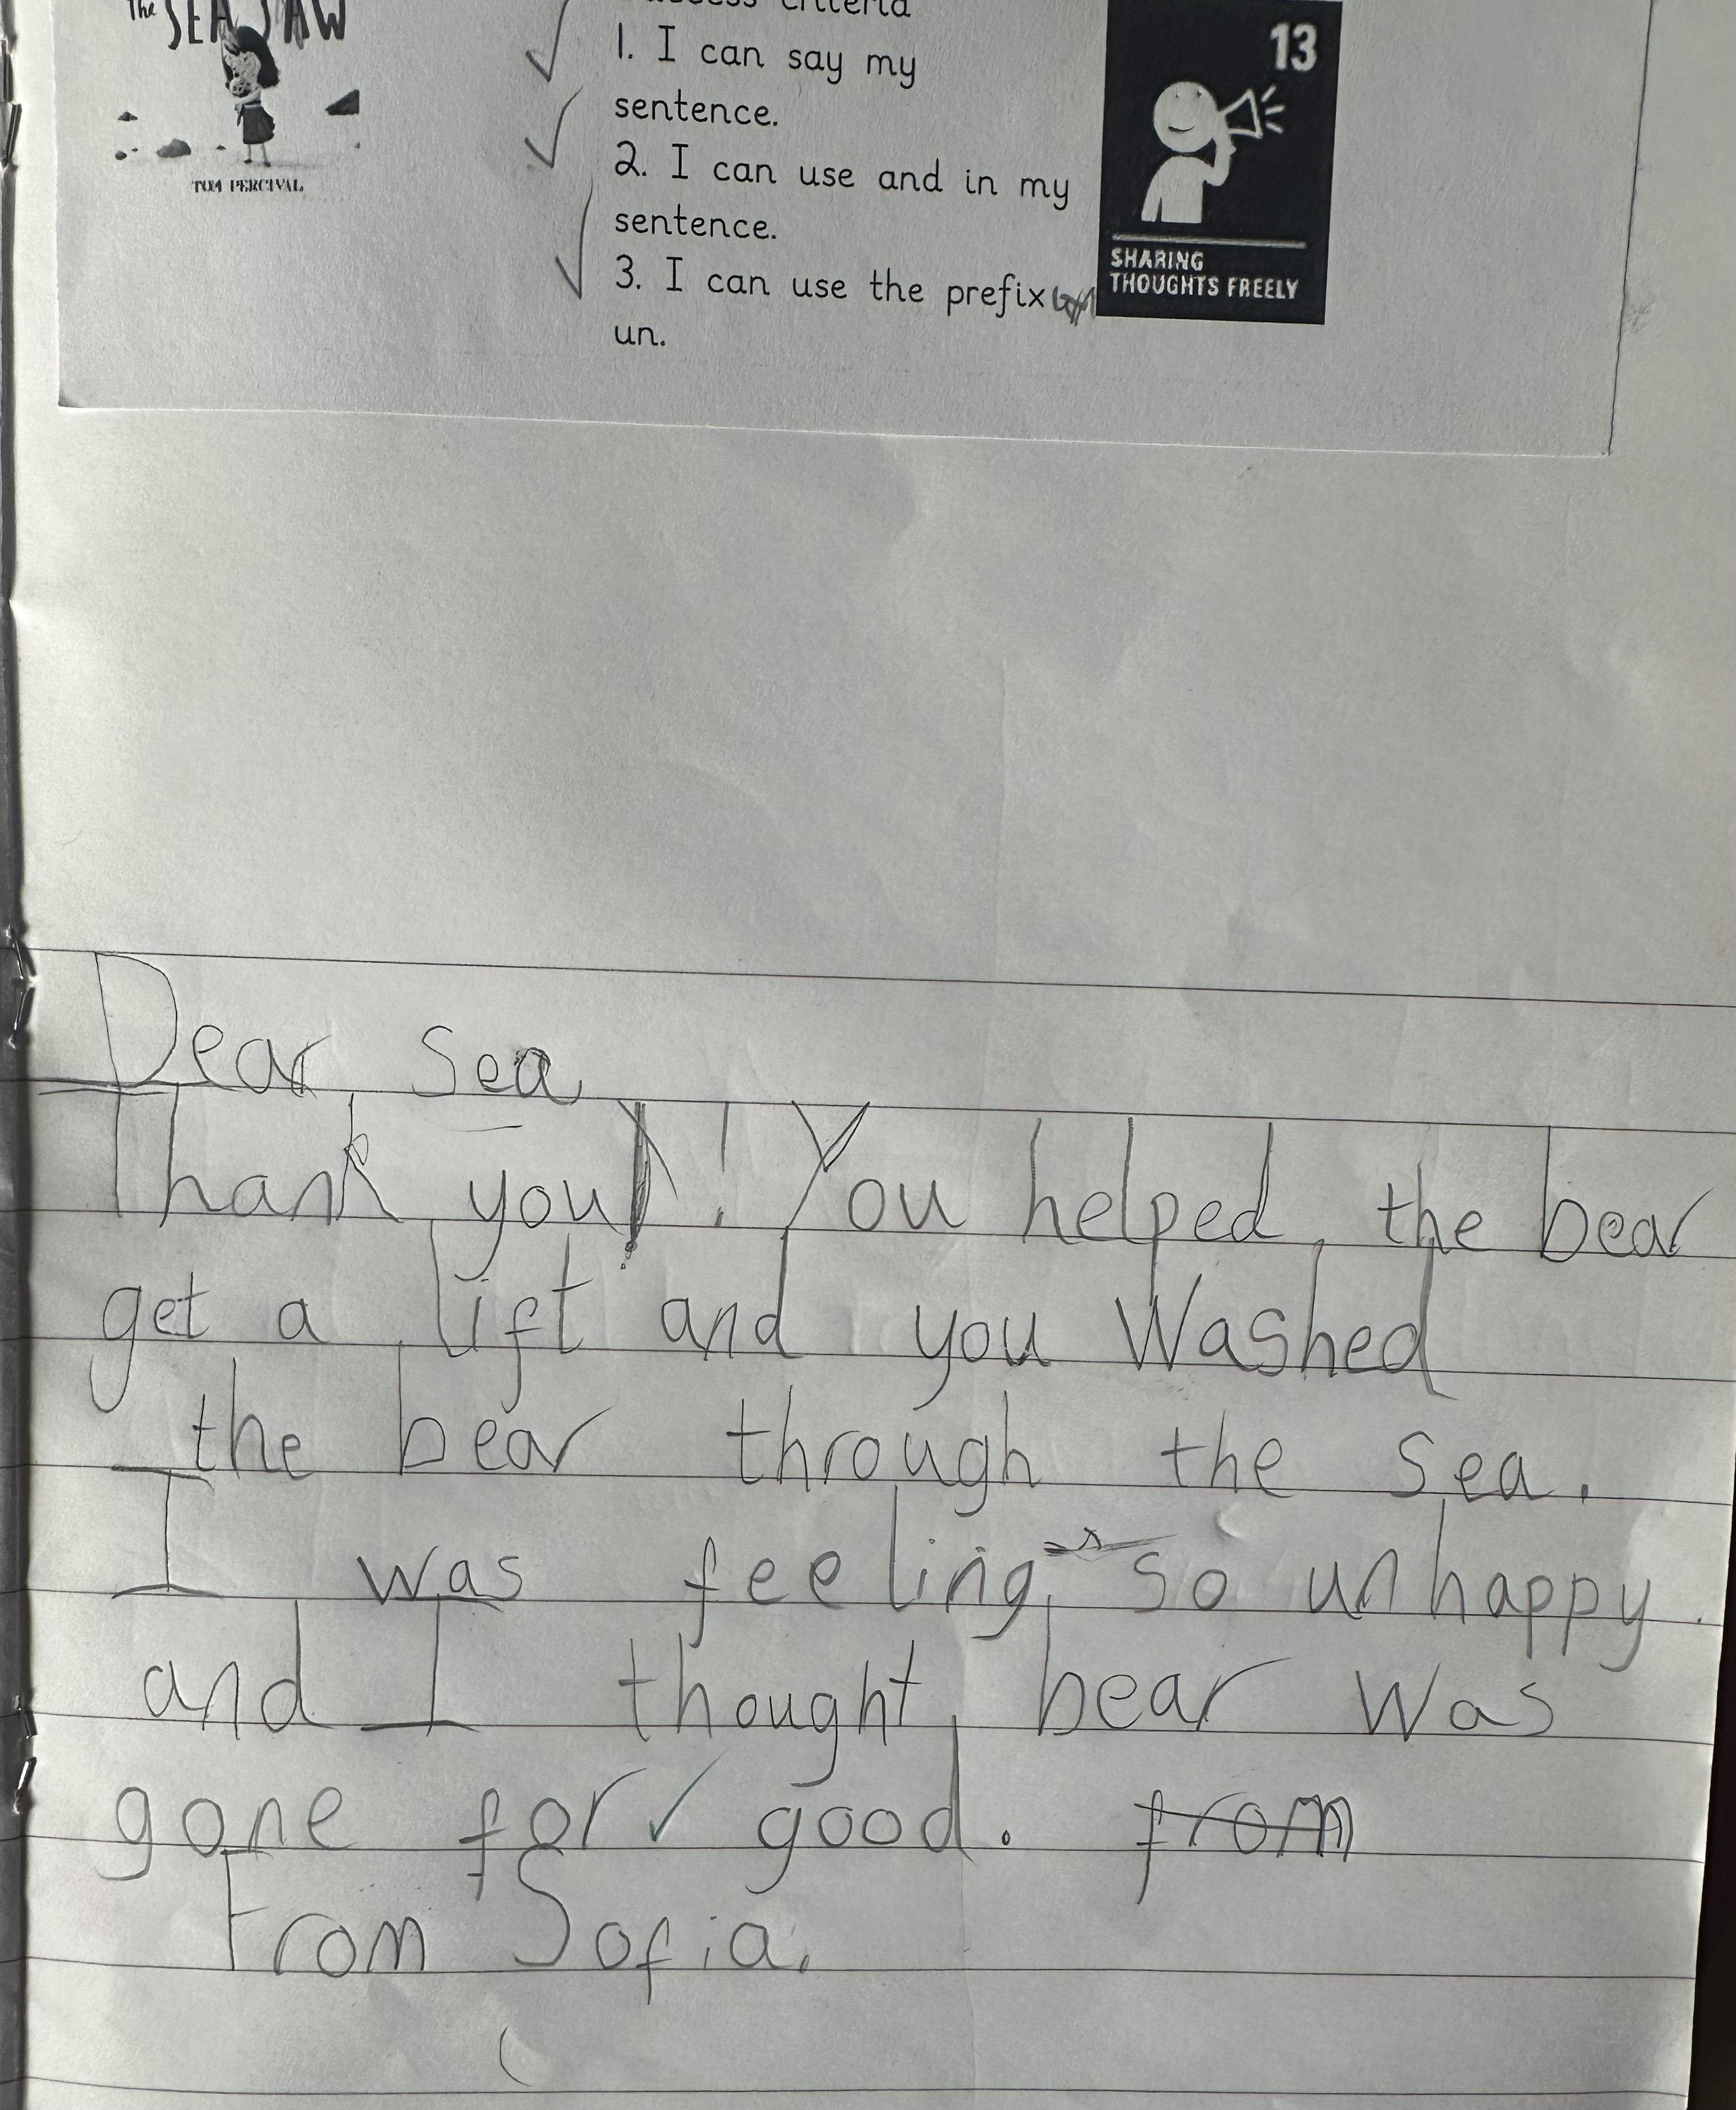 the SEA SAW
TOM PERCIVAL
Success criteria
1. I can say my
sentence.
2. I can use and in my
sentence.
3. I can use the prefix
un.
13
SHARING
THOUGHTS FREELY
Dear Sea
Thank you! You helped the bear
get a lift and you Washed
the bear through the sea.
I was feeling so unhappy
and I thought bear was
gone for good. from
From Sofia.